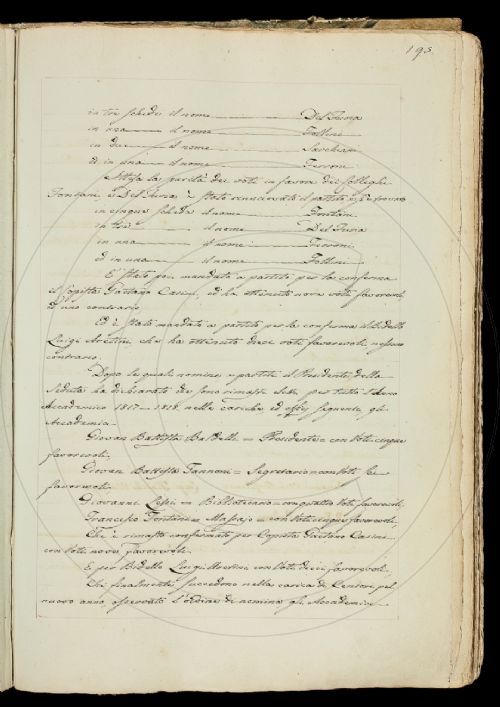 195
in tre schede il nome Del Furia
in una il nome Follini
in due il nome Sarchiani
ed in una il nome Ferroni
Attesa la parità dei voti in favore dei Colleghi
Fontani, e Del Furia è stato rinnovato il partito e si trovino
in cinque schede il nome Fontani
in tre il nome Del Furia
in una il nome Ferroni
ed in una il nome Follini
È stato poi mandato a partito per la conferma
il Copista Gaetano Casini, ed ha ottenuto nove voti favorevoli
ed uno contrario.
Ed è stato mandato a partito per la conferma il Bidello
Luigi che ha ottenuto dieci voti favorevoli nessuno
contrario.
Dopo le quali nomine e partiti il Presidente della
Seduta ha dichiarato che sono rimasti eletti per tutto l'Anno
Accademico 1817-1818. nelle cariche ed seguente gli
Accademia-
Giovan Battista Baldelli = Presidente = con Voti cinque
favorevoli,
Giovan Battista Zannoni = Segretario = con Voti
favorevoli
Giovanni Lessi = Bibliotecario = con quattro Voti favorevoli,
Francesco Fontani = Massajo = con Voti cinque favorevoli,
Che è rimasto confermato per Copista Gaetano Casini
con Voti nove favorevoli.
E per Bidello Luigi con Voti dieci favorevoli.
Che finalmente succedono nella carica di Censori pel
nuovo anno osservato l'ordine di nomina gli Accademici